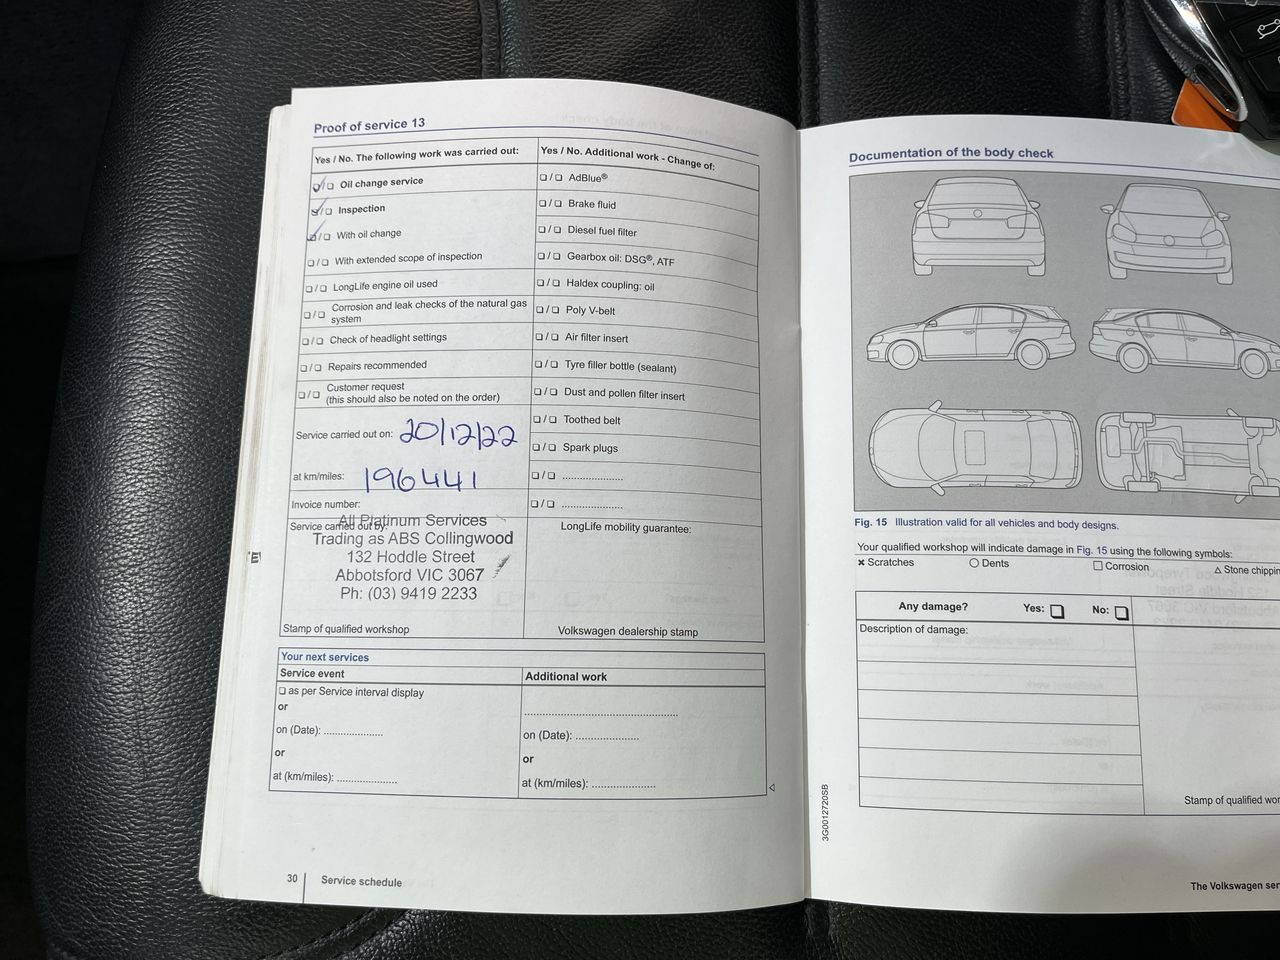 Proof of service 13
Yes / No. The following work was carried out:
Yes / No. Additional work - Change of:
Oil change service
AdBlue®
Inspection
Brake fluid
With oil change
Diesel fuel filter
With extended scope of inspection
Gearbox oil: DSG®, ATF
LongLife engine oil used
Haldex coupling: oil
Corrosion and leak checks of the natural gas
system
Poly V-belt
Check of headlight settings
Air filter insert
Repairs recommended
Tyre filler bottle (sealant)
Customer request
(this should also be noted on the order)
Dust and pollen filter insert
Toothed belt
Service carried out on: 20/12/22
Spark plugs
at km/miles: 196441
Invoice number:
Service carried out by:
All Platinum Services
Trading as ABS Collingwood
132 Hoddle Street
Abbotsford VIC 3067
Ph: (03) 9419 2233
Stamp of qualified workshop
LongLife mobility guarantee:
Volkswagen dealership stamp
Your next services
Service event
Additional work
as per Service interval display
or
on (Date): ....................
or
at (km/miles): ....................
on (Date): ....................
or
at (km/miles): ....................
30 Service schedule
Documentation of the body check
Fig. 15 Illustration valid for all vehicles and body designs.
Your qualified workshop will indicate damage in Fig. 15 using the following symbols:
× Scratches ○ Dents □ Corrosion △ Stone chippin
Any damage? Yes: No:
Description of damage:
Stamp of qualified wor
3G0012720SB
The Volkswagen ser